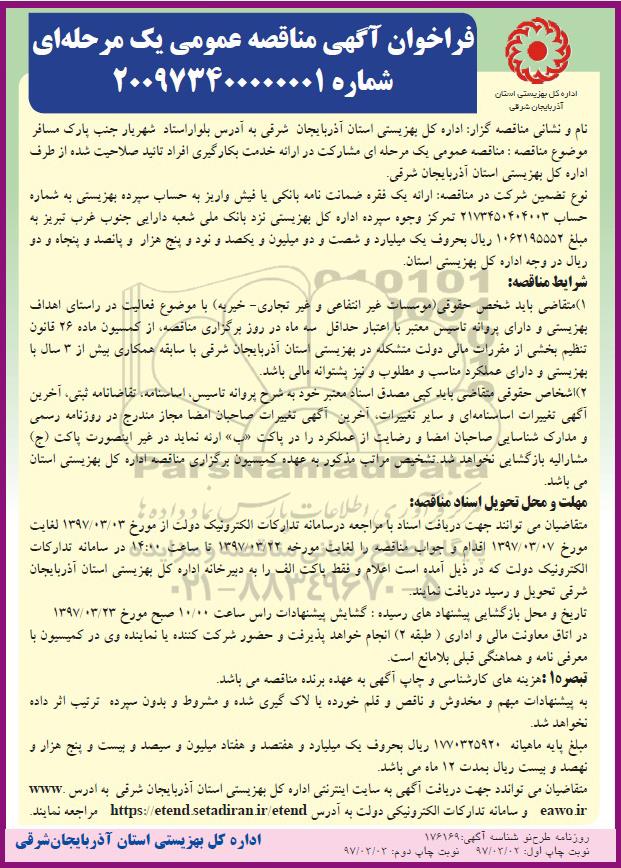 فراخوان آگهی مناقصه عمومی یک مرحله‌ای
شماره ۲۰۰۹۷۳۴۰۰۰۰۰۰۰۰۱
اداره کل بهزیستی استان
آذربایجان شرقی
نام و نشانی مناقصه گزار: اداره کل بهزیستی استان آذربایجان شرقی به آدرس بلواراستاد شهریار جنب پارک مسافر
موضوع مناقصه : مناقصه عمومی یک مرحله ای مشارکت در ارائه خدمت بکارگیری افراد تائید صلاحیت شده از طرف
اداره کل بهزیستی استان آذربایجان شرقی.
نوع تضمین شرکت در مناقصه: ارائه یک فقره ضمانت نامه بانکی یا فیش واریز به حساب سپرده بهزیستی به شماره
حساب ۲۱۷۳۴۵۰۴۰۴۰۰۳ تمرکز وجوه سپرده اداره کل بهزیستی نزد بانک ملی شعبه دارایی جنوب غرب تبریز به
مبلغ ۱۰۶۲۱۹۵۵۵۲ ریال بحروف یک میلیارد و شصت و دو میلیون و یکصد و نود و پنج هزار و پانصد و پنجاه و دو
ریال در وجه اداره کل بهزیستی استان.
شرایط مناقصه:
۱)متقاضی باید شخص حقوقی(موسسات غیر انتفاعی و غیر تجاری- خیریه) با موضوع فعالیت در راستای اهداف
بهزیستی و دارای پروانه تاسیس معتبر با اعتبار حداقل سه ماه در روز برگزاری مناقصه، از کمسیون ماده ۲۶ قانون
تنظیم بخشی از مقررات مالی دولت متشکله در بهزیستی استان آذربایجان شرقی با سابقه همکاری بیش از ۳ سال با
بهزیستی و دارای عملکرد مناسب و مطلوب و نیز پشتوانه مالی باشد.
۲)اشخاص حقوقی متقاضی باید کپی مصدق اسناد معتبر خود به شرح پروانه تاسیس، اساسنامه، تقاضانامه ثبتی، آخرین
آگهی تغییرات اساسنامه‌ای و سایر تغییرات، آخرین آگهی تغییرات صاحبان امضا مجاز مندرج در روزنامه رسمی
و مدارک شناسایی صاحبان امضا و رضایت از عملکرد را در پاکت «ب» ارئه نماید در غیر اینصورت پاکت (ج)
مشارالیه بازگشایی نخواهد شد.تشخیص مراتب مذکور به عهده کمیسیون برگزاری مناقصه اداره کل بهزیستی استان
می باشد.
مهلت و محل تحویل اسناد مناقصه:
متقاضیان می توانند جهت دریافت اسناد با مراجعه درسامانه تدارکات الکترونیک دولت از مورخ ۱۳۹۷/۰۳/۰۳ لغایت
مورخ ۱۳۹۷/۰۳/۰۷ اقدام و جواب مناقصه را لغایت مورخه ۱۳۹۷/۰۳/۲۲ تا ساعت ۱۴:۰۰ در سامانه تدارکات
الکترونیک دولت که در ذیل آمده است اعلام و فقط پاکت الف را به دبیرخانه اداره کل بهزیستی استان آذربایجان
شرقی تحویل و رسید دریافت نمایند.
تاریخ و محل بازگشایی پیشنهاد های رسیده : گشایش پیشنهادات راس ساعت ۱۰/۰۰ صبح مورخ ۱۳۹۷/۰۳/۲۳
در اتاق معاونت مالی و اداری ( طبقه ۲) انجام خواهد پذیرفت و حضور شرکت کننده یا نماینده وی در کمیسیون با
معرفی نامه و هماهنگی قبلی بلامانع است.
تبصره۱:هزینه های کارشناسی و چاپ آگهی به عهده برنده مناقصه می باشد.
به پیشنهادات مبهم و مخدوش و ناقص و قلم خورده یا لاک گیری شده و مشروط و بدون سپرده ترتیب اثر داده
نخواهد شد.
مبلغ پایه ماهیانه ۱۷۷۰۳۲۵۹۲۰ ریال بحروف یک میلیارد و هفتصد و هفتاد میلیون و سیصد و بیست و پنج هزار و
نهصد و بیست ریال بمدت ۱۲ ماه می باشد.
متقاضیان می تواندد جهت دریافت آگهی به سایت اینترنتی اداره کل بهزیستی استان آذربایجان شرقی به ادرس www.
eawo.ir و سامانه تدارکات الکترونیکی دولت به آدرس https://etend.setadiran.ir/etend مراجعه نمایند.
روزنامه طرح‌نو شناسه آگهی:۱۷۶۱۶۹
نوبت چاپ اول: ۹۷/۰۳/۰۲ نوبت چاپ دوم: ۹۷/۰۳/۰۳
اداره کل بهزیستی استان آذربایجان‌شرقی
ParsNamadData
۰۲۱-۸۸۳۴۹۶۷۰-۵